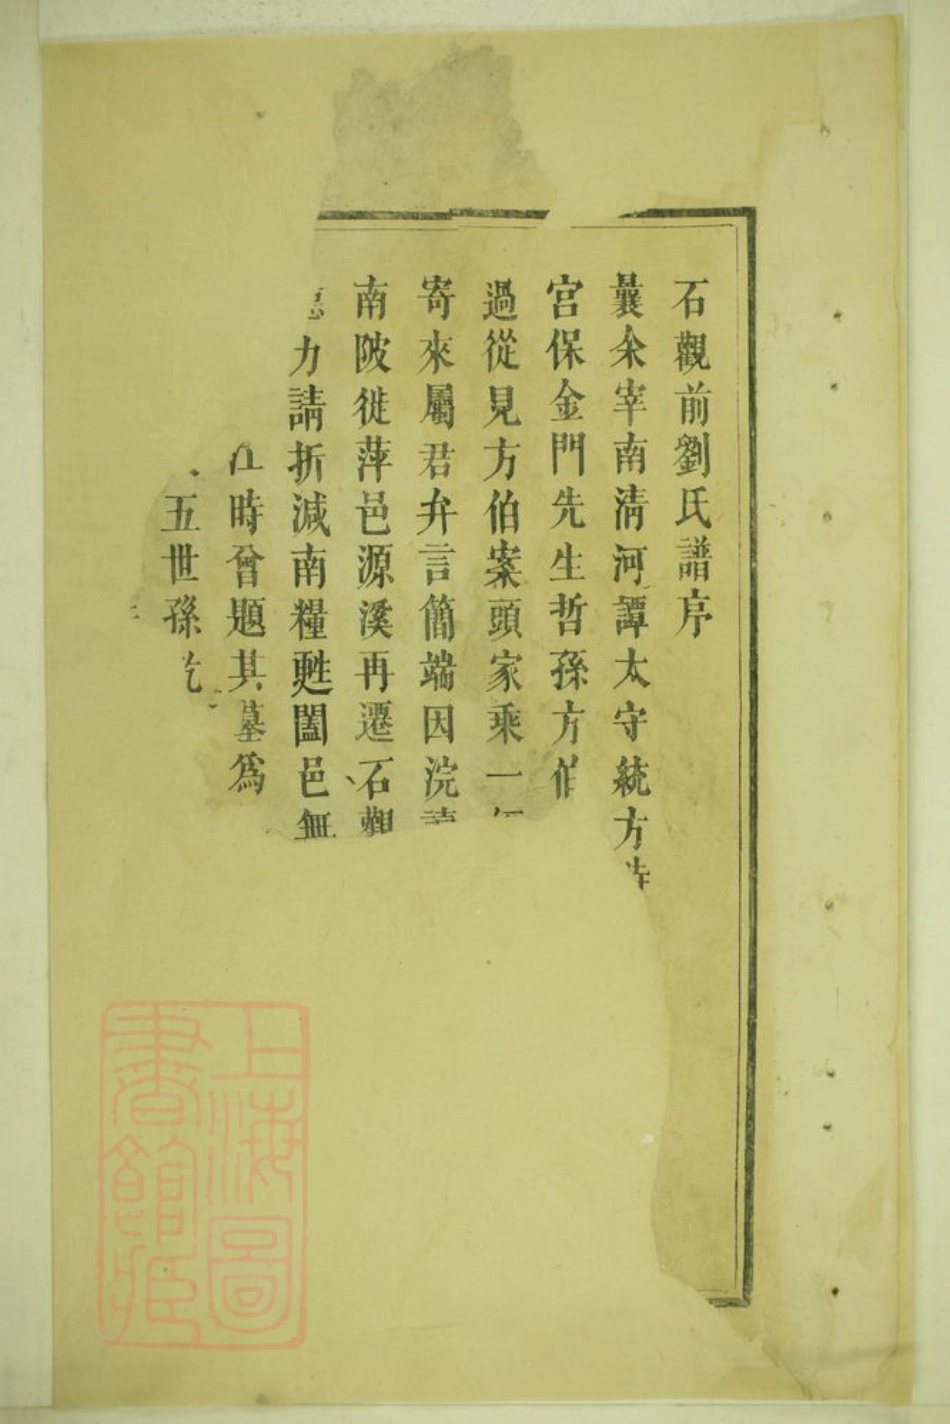 石觀前劉氏譜序
曩余宰南淸河譚太守統方
宮保金門先生哲孫方伯
過從見方伯案頭家乘一
寄來屬君弁言簡端因浣讀
南陂徙萍邑源溪再遷石觀
力請折減南糧甦闔邑無
時曾題其墓爲
五世孫
上海圖書館藏